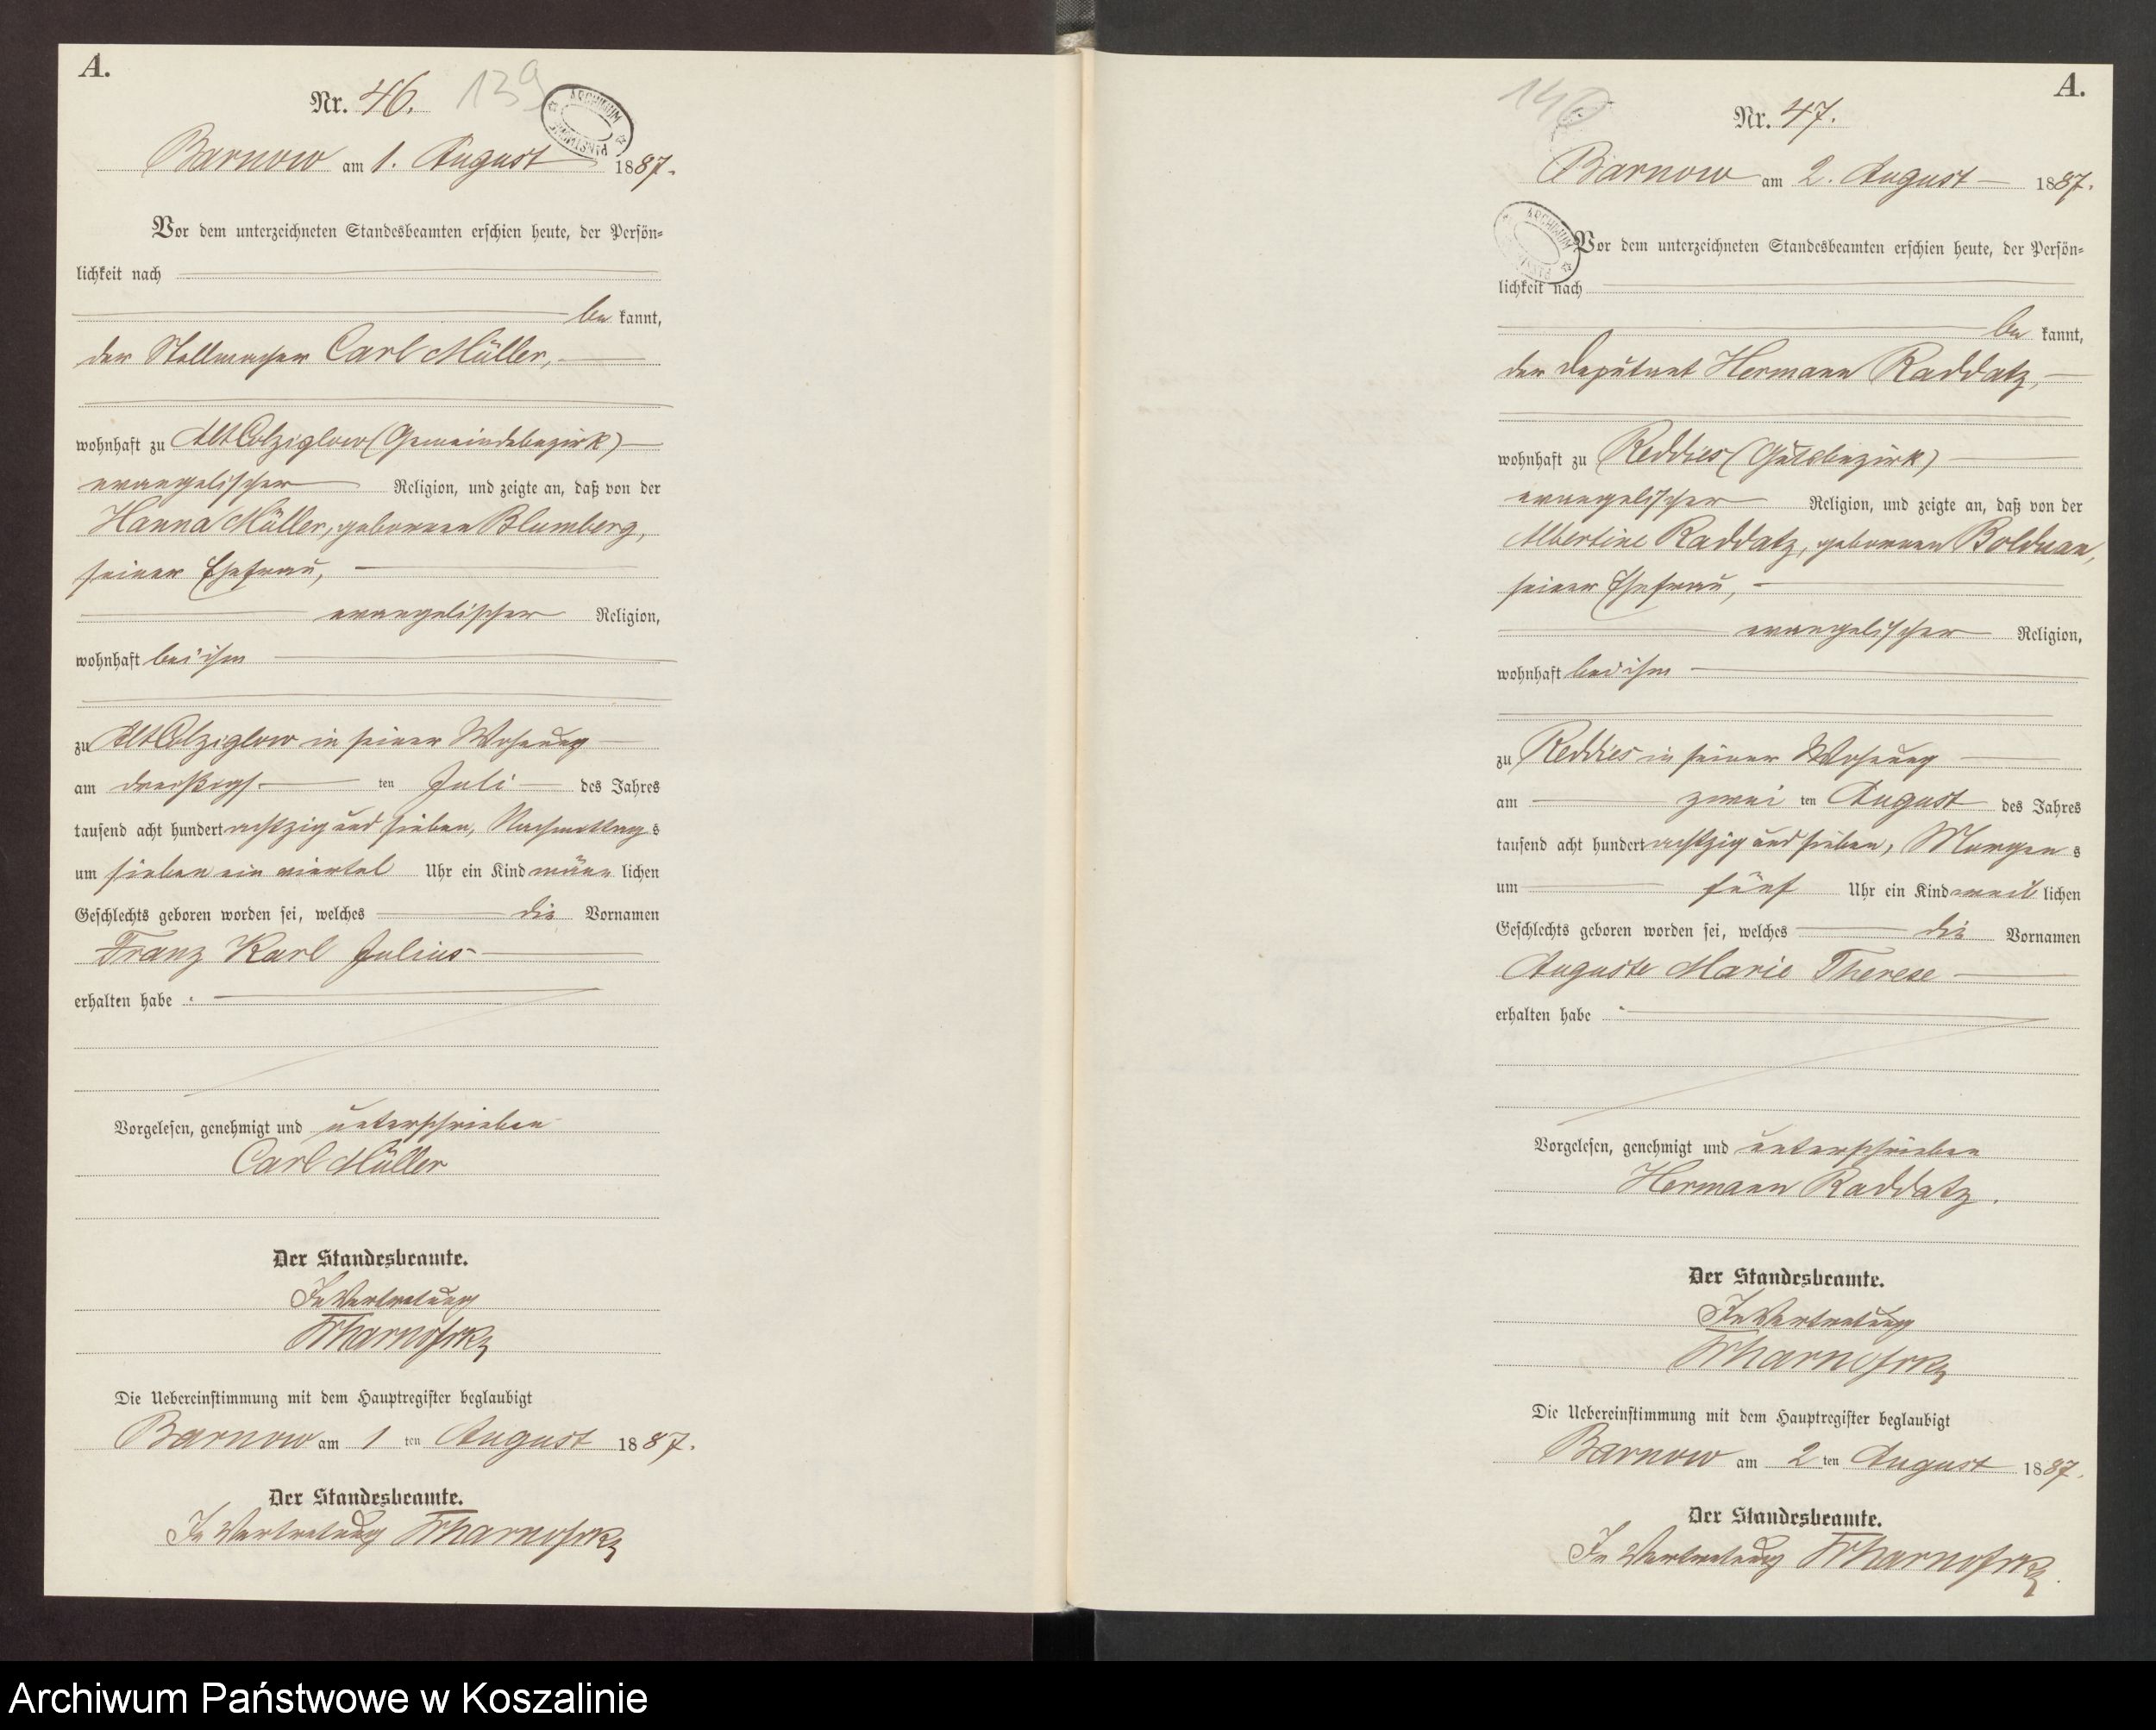 A.
Nr. 46.
139
ARCHIWUM PAŃSTWOWE
Barnow am 1. August 1887.
Vor dem unterzeichneten Standesbeamten erschien heute, der Persön-
lichkeit nach
be kannt,
der Stellmacher Carl Müller,
wohnhaft zu Alt Colziglow (Gemeindebezirk)
evangelischer Religion, und zeigte an, daß von der
Hanna Müller, geborenen Blumberg,
seiner Ehefrau,
evangelischer Religion,
wohnhaft bei ihm
zu Alt Colziglow in seiner Wohnung
am dreißigs ten Juli des Jahres
tausend acht hundert achtzig und sieben, Nachmittag s
um sieben ein viertel Uhr ein Kind männ lichen
Geschlechts geboren worden sei, welches die Vornamen
Franz Karl Julius
erhalten habe .
Vorgelesen, genehmigt und unterschrieben
Carl Müller
Der Standesbeamte.
In Vertretung
Die Uebereinstimmung mit dem Hauptregister beglaubigt
Barnow am 1 ten August 1887.
Der Standesbeamte.
In Vertretung
A.
140
Nr. 47.
Barnow am 2. August 1887.
ARCHIWUM
Vor dem unterzeichneten Standesbeamten erschien heute, der Persön-
lichkeit nach
be kannt,
der Deputant Hermann Raddatz,
wohnhaft zu Reddies (Gutsbezirk)
evangelischer Religion, und zeigte an, daß von der
Albertine Raddatz, geborenen Bolduan,
seiner Ehefrau,
evangelischer Religion,
wohnhaft bei ihm
zu Reddies in seiner Wohnung
am zwei ten August des Jahres
tausend acht hundert achtzig und sieben, Morgen s
um fünf Uhr ein Kind weib lichen
Geschlechts geboren worden sei, welches die Vornamen
Auguste Marie Therese
erhalten habe .
Vorgelesen, genehmigt und unterschrieben
Hermann Raddatz.
Der Standesbeamte.
In Vertretung
Die Uebereinstimmung mit dem Hauptregister beglaubigt
Barnow am 2 ten August 1887.
Der Standesbeamte.
In Vertretung
Archiwum Państwowe w Koszalinie